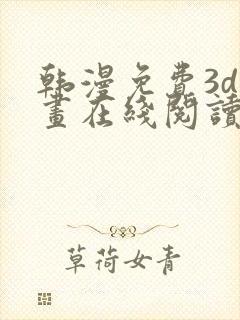 韩漫免费3d
畫在綫閱讀
草荷女青